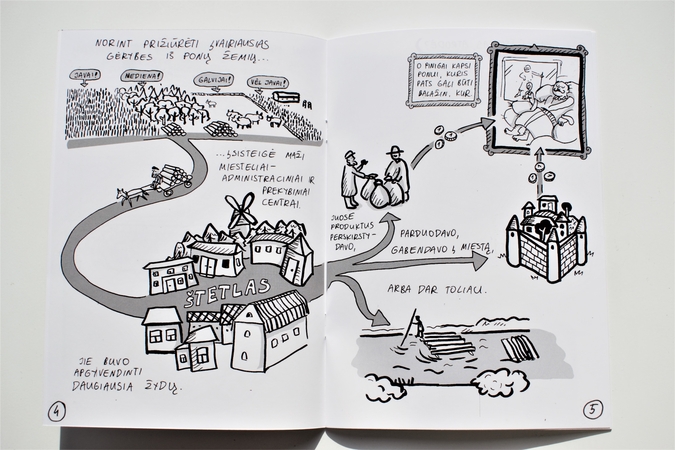 NORINT PRIŽIŪRĖTI ĮVAIRIAUSIAS
GĖRYBES IŠ PONŲ ŽEMIŲ...
JAVAI!
MEDIENA!
GALVIJAI!
VĖL JAVAI!
...ĮSISTEIGĖ MAŽI
MIESTELIAI-
ADMINISTRACINIAI IR
PREKYBINIAI
CENTRAI.
ŠTETLAS
JIE BUVO
APGYVENDINTI
DAUGIAUSIA ŽYDŲ.
4
O PINIGAI KAPSI
PONUI, KURIS
PATS GALI BŪTI
BALAŽIN, KUR.
JUOSE
PRODUKTUS
PERSKIRSTY-
DAVO,
PARDUODAVO,
GABENDAVO Į MIESTĄ,
ARBA DAR TOLIAU.
5